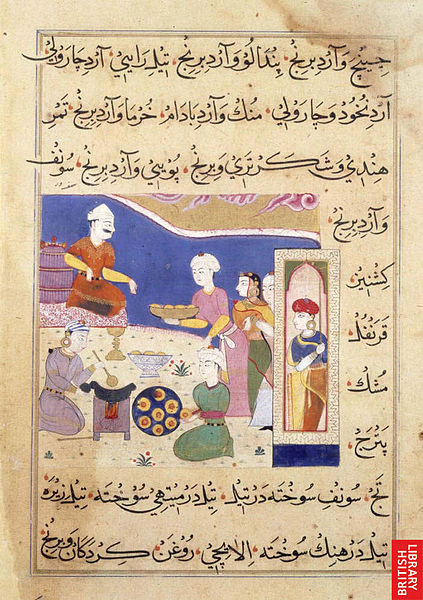 و آرد برنج پندالو و آرد برنج تیل رایی آرد چارولی
آرد نخود و چارولی منک و آرد بادام خرما و آرد برنج تمر
هندی و شکر تری و برنج پویی و آرد برنج سونف
و آرد برنج
کشنیز
قرنفل
مشک
پترج
تج سونف سوخته در تیل تیل در میتهی سوخته تیل زیره
تیل در هنک سوخته الایچی روغن کردگان و برنج
BRITISH
LIBRARY